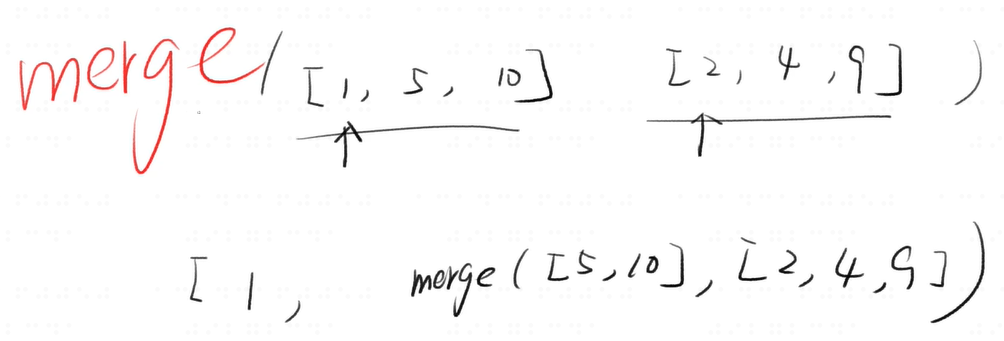 merge( [1, 5, 10] [2, 4, 9] )
[ 1, merge( [5, 10], [2, 4, 9] )